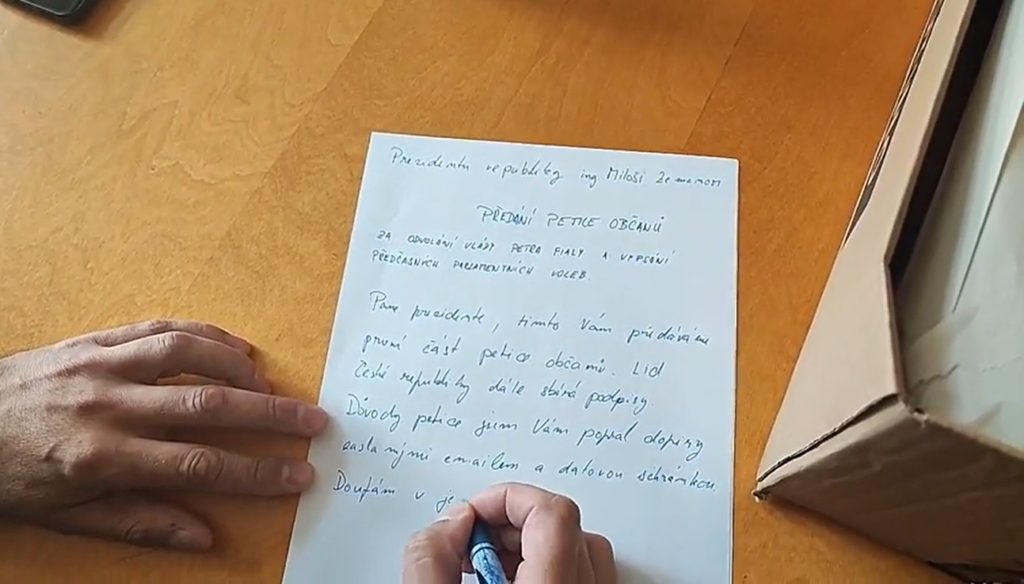 Prezidentu republiky ing Miloši Zemanovi
PŘEDÁNÍ PETICE OBČANŮ
ZA ODVOLÁNÍ VLÁDY PETRA FIALY A VYPSÁNÍ
PŘEDČASNÝCH PARLAMENTNÍCH VOLEB.
Pane prezidente, tímto Vám předáváme
první část petice občanů. Lid
České republiky dále sbírá podpisy.
Důvody petice jsem Vám popsal dopisy
zaslanými emailem a datovou schránkou.
Doufám v je